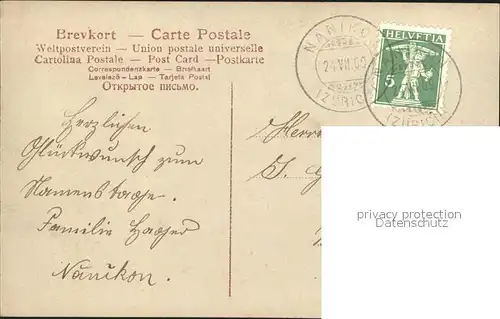 Brevkort — Carte Postale
Weltpostverein — Union postale universelle
Cartolina Postale — Post Card — Postkarte
Correspondenzkarte — Briefkaart
Levelező-Lap — Tarjeta Postal
Открытое письмо.
NÄNIKON
24.VII.09
(ZÜRICH)
HELVETIA
5
(ZÜRICH)
Herzlichen
Glückwunsch zum
Namenstage.
Familie
Nänikon.
Herrn
J. G
privacy protection
Datenschutz